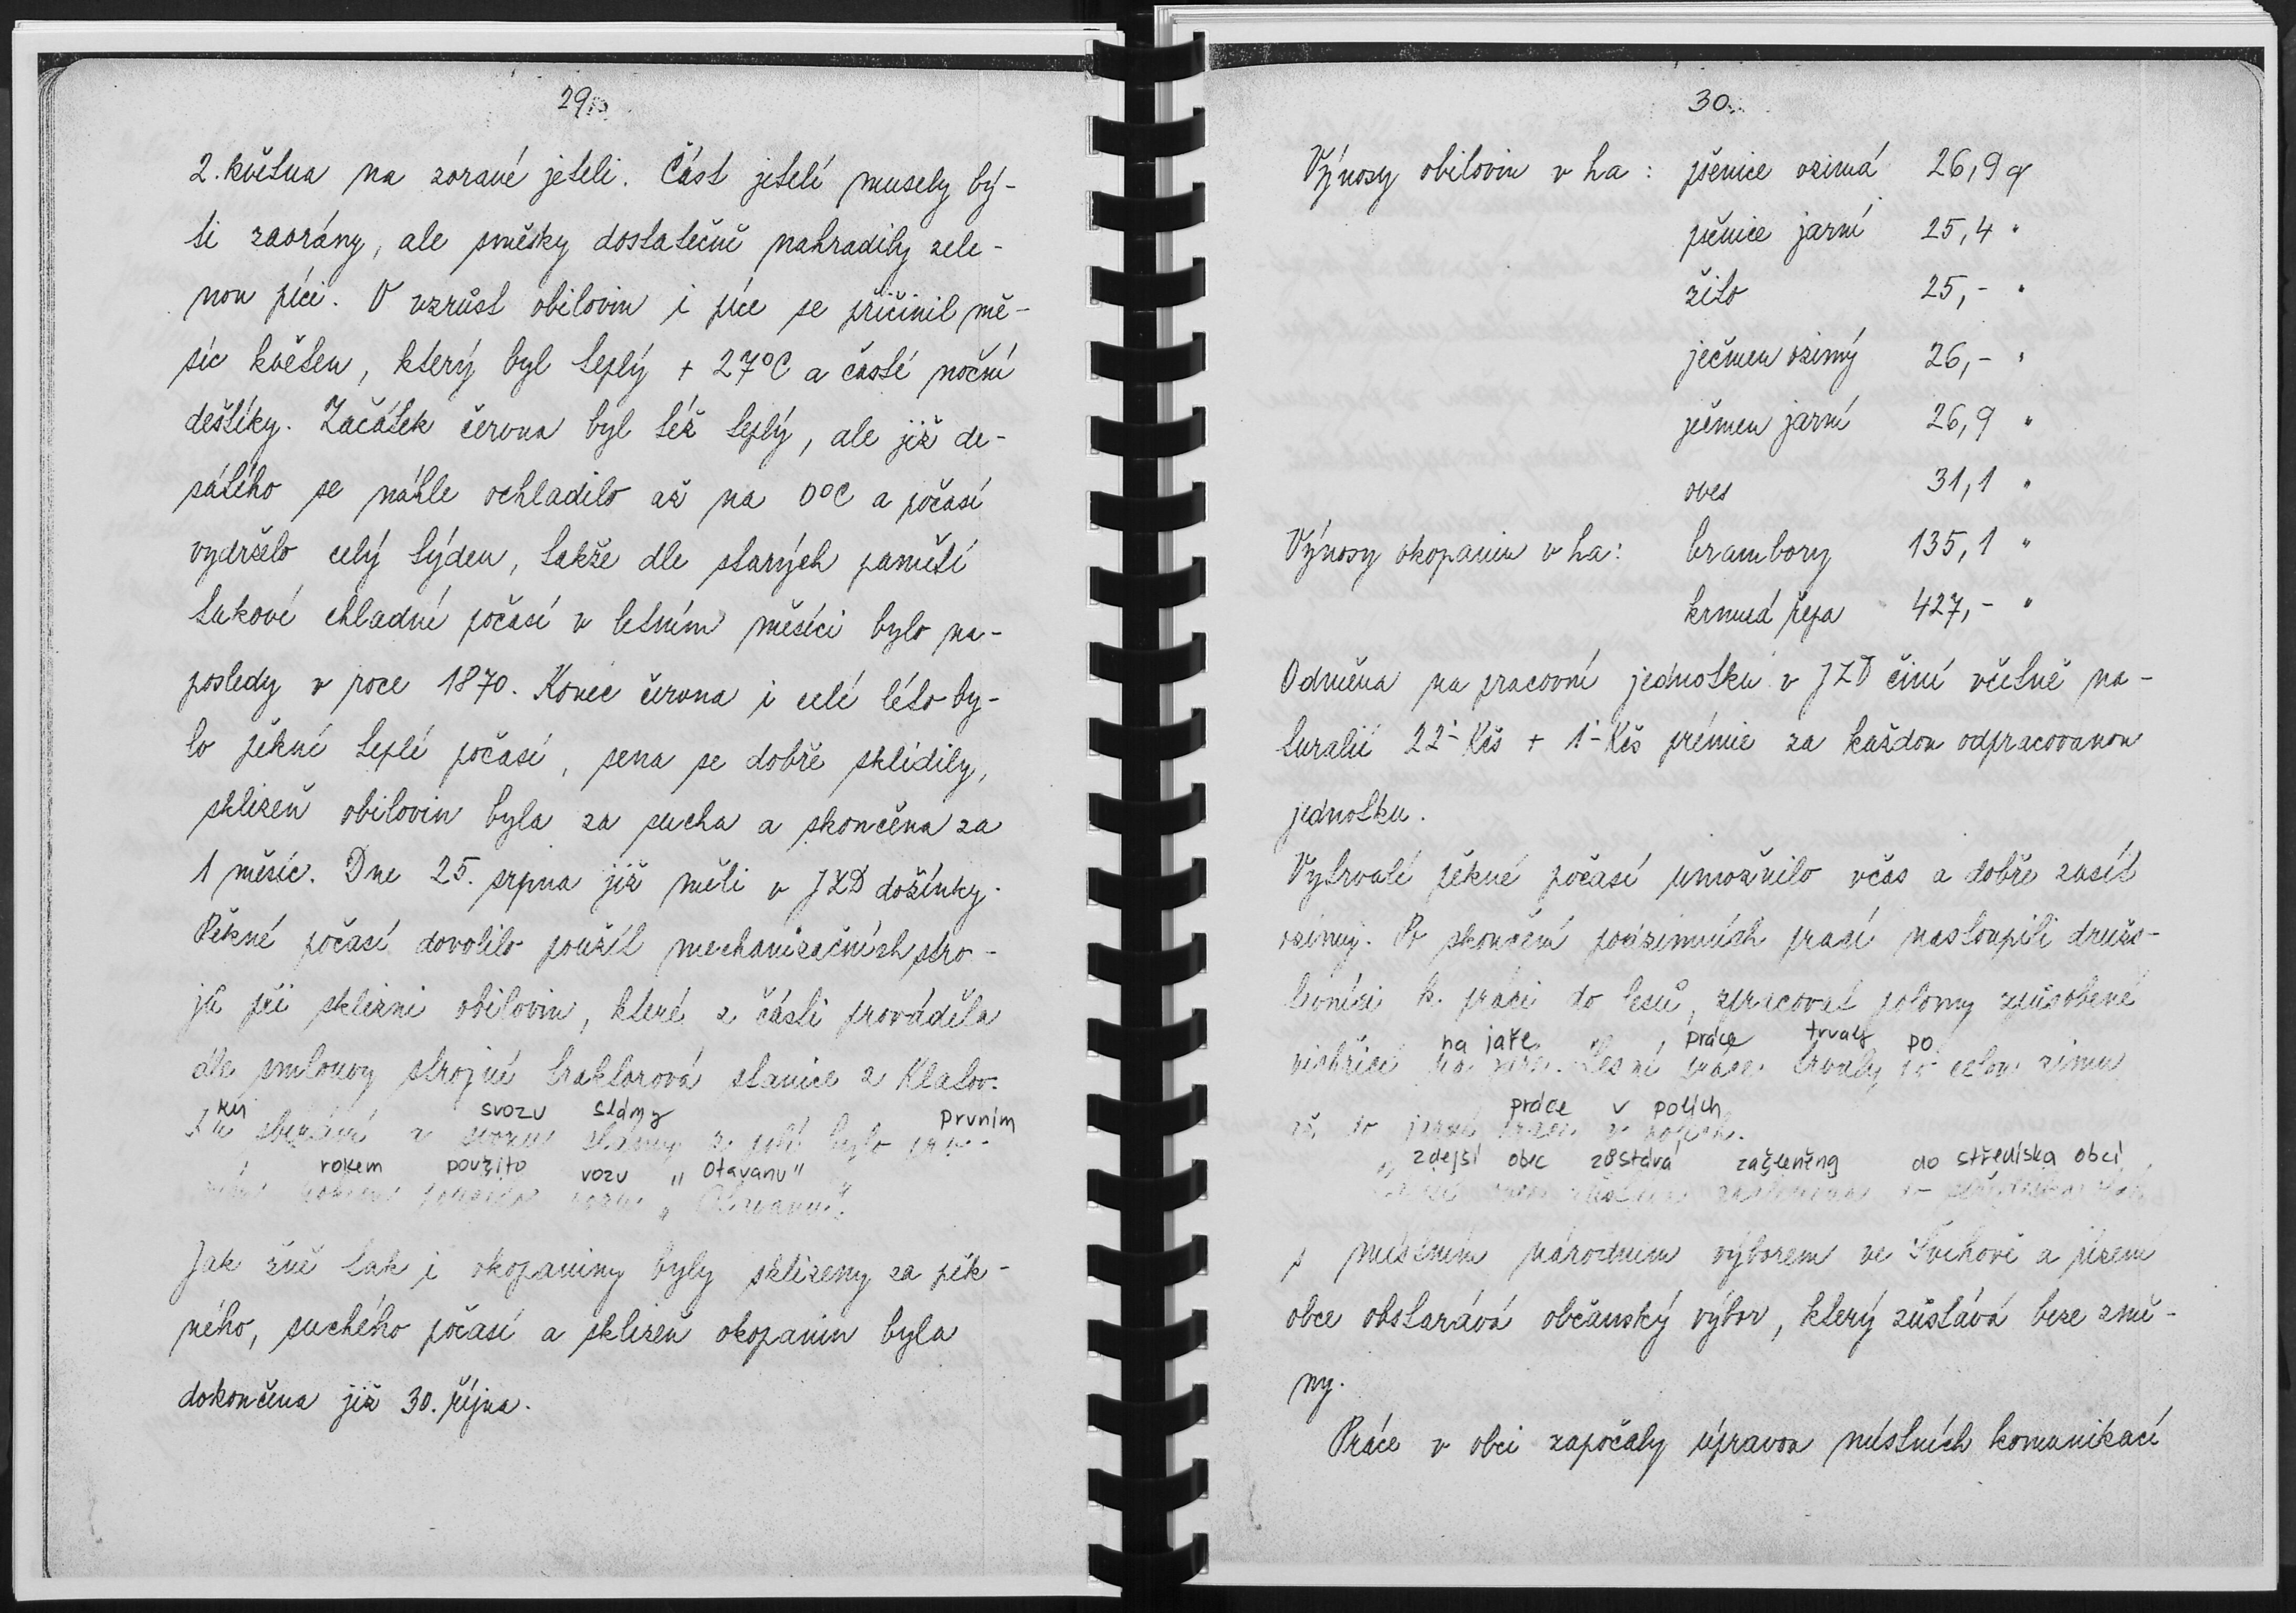 29.
2. května na zorané jeteli. Část jetelí musely bý-
ti zaorány, ale směsky dostatečně nahradily zele-
nou píci. O vzrůst obilovin i píce se přičinil mě-
síc květen, který byl teplý + 27°C a časté noční
deštíky. Začátek června byl též teplý, ale již de-
sátého se náhle ochladilo až na 0°C a počasí
vydrželo celý týden, takže dle starých pamětí
takové chladné počasí v letním měsíci bylo na-
posledy v roce 1870. Konec června i celé léto by-
lo pěkné teplé počasí, sena se dobře sklidily,
sklizeň obilovin byla za sucha a skončena za
1 měsíc. Dne 25. srpna již měli v JZD dožínky.
Pěkné počasí dovolilo použít mechanizačních stro-
jů při sklizni obilovin, které z části prováděla
dle smlouvy strojní traktorová stanice z Klatov.
ku svozu slámy prvním
Ku sbírání a svozu slámy z polí bylo prv-
rokem použito vozu "Otavanu"
ním rokem použito vozu "Otavanu".
Jak žně tak i okopaniny byly sklizeny za pěk-
ného, suchého počasí a sklizeň okopanin byla
dokončena již 30. října.
30.
Výnosy obilovin v ha: pšenice ozimá 26,9 q
pšenice jarní 25,4 "
žito 25,- "
ječmen ozimý 26,- "
ječmen jarní 26,9 "
oves 31,1 "
Výnosy okopanin v ha: brambory 135,1 "
krmná řepa 427,- "
Odměna na pracovní jednotku v JZD činí včetně na-
turalií 22,- Kčs + 1,- Kčs prémie za každou odpracovanou
jednotku.
Vytrvalé pěkné počasí umožnilo včas a dobře zasít
ozimy. Po skončení podzimních prací nastoupili družs-
tevníci k práci do lesů, zpracovat polomy způsobené
na jaře práce trvaly po
vichřicí na jaře. Lesní práce trvaly po celou zimu
práce v polích
až do jarní práce v polích.
zdejší obec zůstává začleněna do střediska obcí
s místním národním výborem ve Švihově a řízení
obce obstarává občanský výbor, který zůstává beze změ-
ny.
Práce v obci započaly úpravou místních komunikací